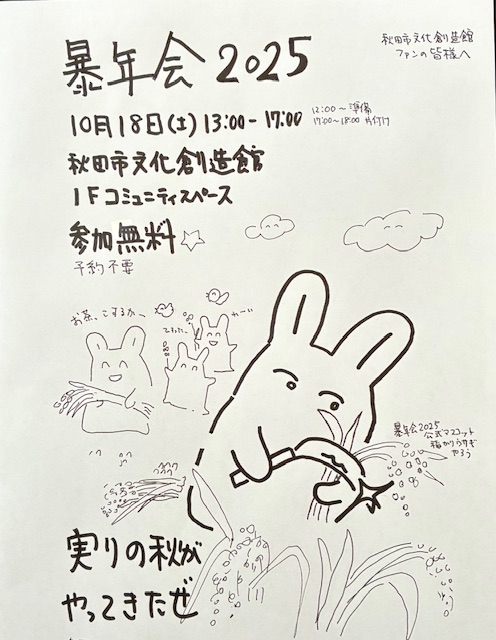 秋田市文化創造館
ファンの皆様へ
暴年会 2025
10月18日(土) 13:00-17:00
12:00〜準備
17:00〜18:00 片付け
秋田市文化創造館
1Fコミュニティスペース
参加無料☆
予約不要
お茶、こするか〜
わーい
暴年会2025
公式マスコット
稲かりうさぎ
やろう
実りの秋が
やってきたぜ